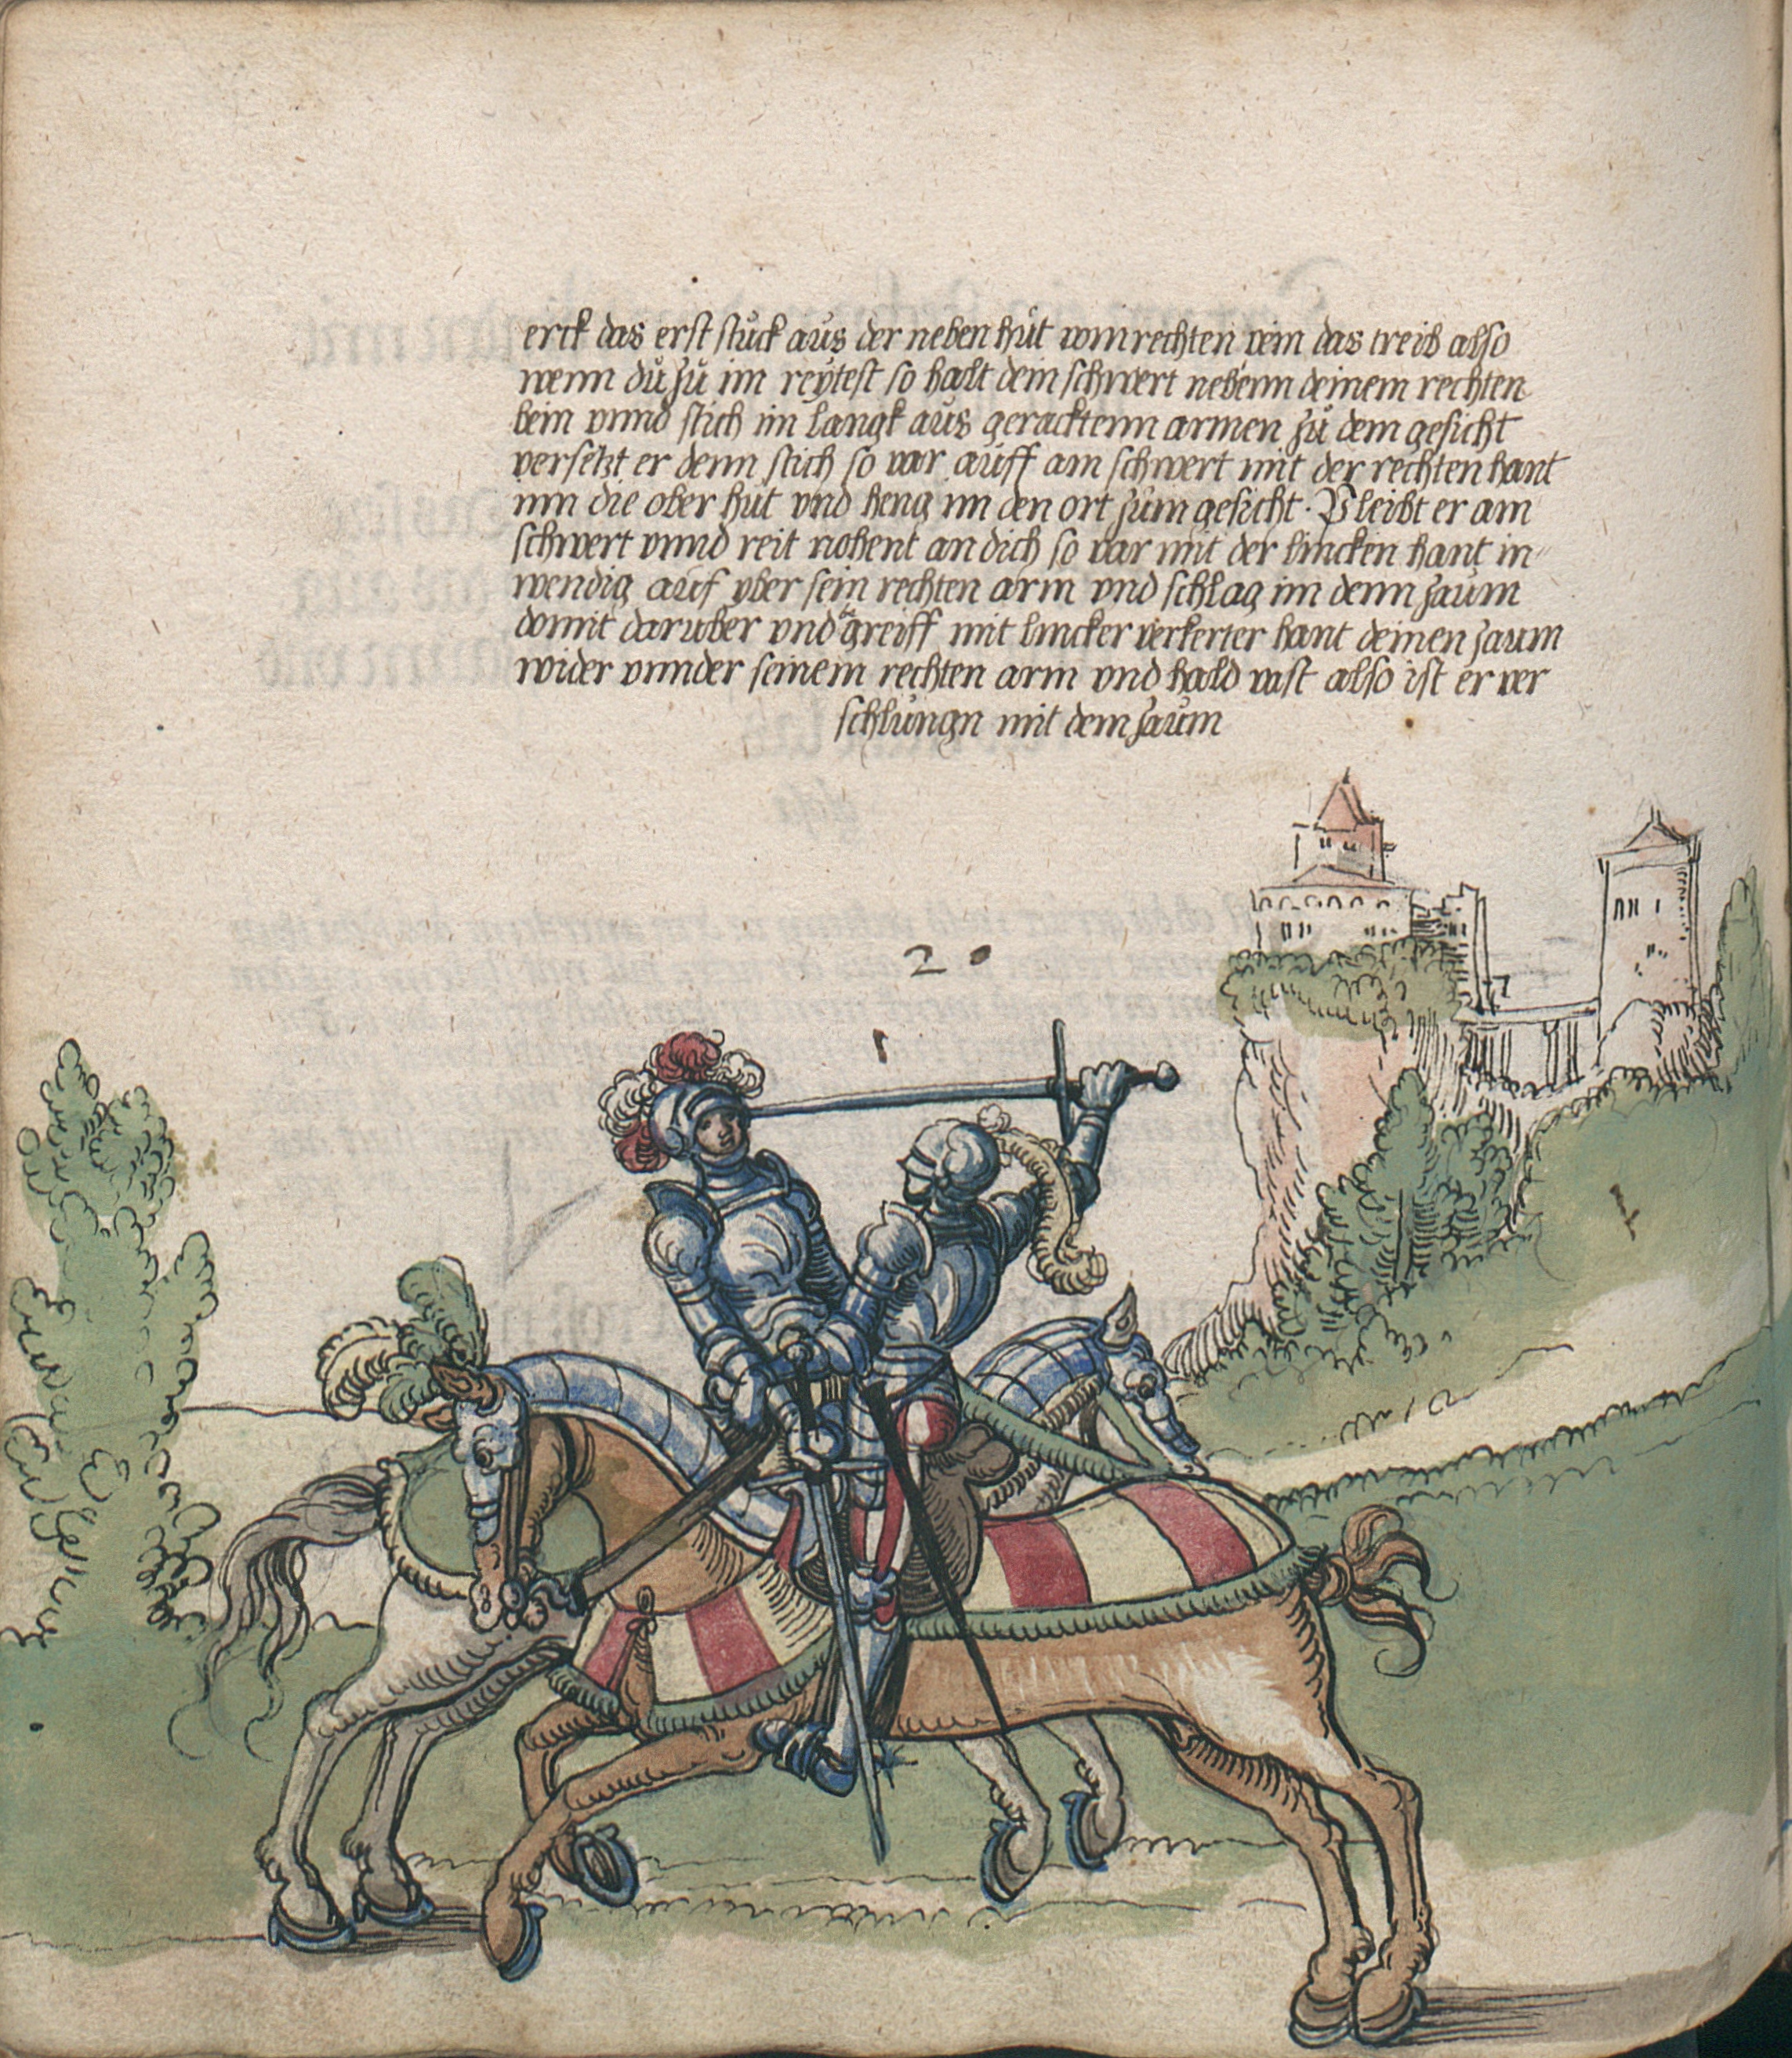 erck das erst stuck aus der neben hut vom rechten pein das treib also
wenn du zu im reytest so halt dein schwert nebenn deinem rechten
bein vnnd stich im langk aus geracktenn armen zu dem gesicht
versetzt er denn stich so var auff am schwert mit der rechten hant
inn die ober hut vnd heng im den ort zum gesicht · Pleibt er am
schwert vnnd reit nohent an dich so var mit der lincken hant in=
wendig auf vber sein rechten arm vnd schlag im denn zaum
domit daruber vnd greiff mit lincker verkerter hant deinen zaum
wider vnnder seinem rechten arm vnd hald vast also ist er ver
schlungn mit dem zaum
20
1
1